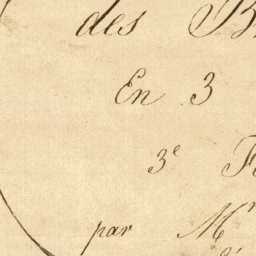 des B
En 3
3e F
par Mr